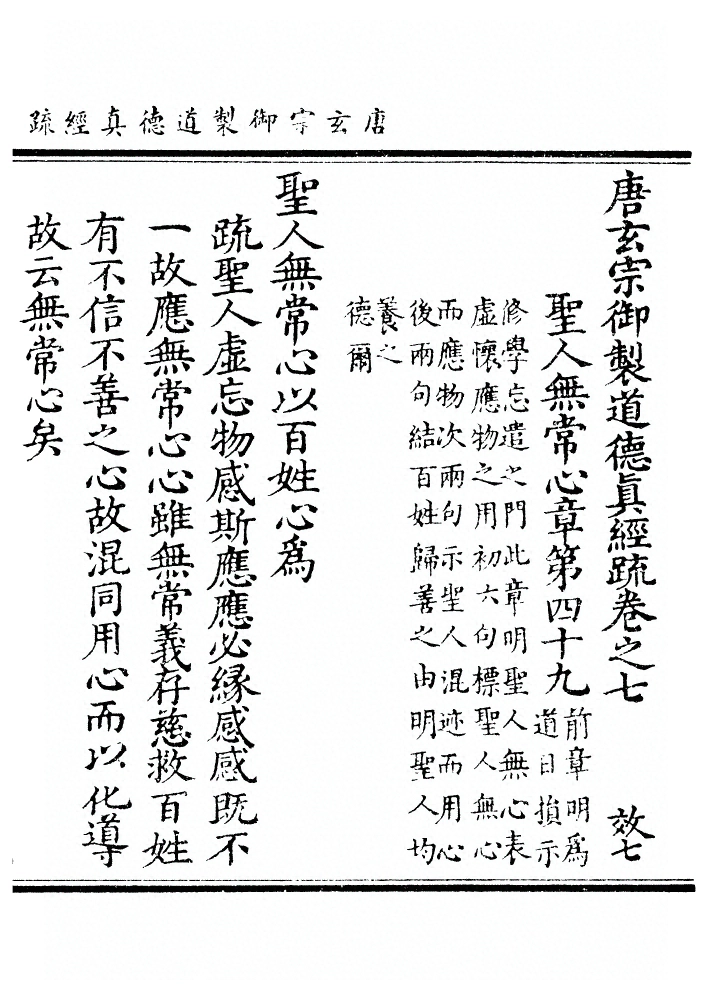 唐玄宗御製道德真經疏
唐玄宗御製道德眞經疏卷之七 效七
聖人無常心章第四十九
前章明為
道日損示
修學忘遣之門此章明聖人無心表
虛懷應物之用初六句標聖人無心
而應物次兩句示聖人混迹而用心
後兩句結百姓歸善之由明聖人均
養之
德爾
聖人無常心以百姓心爲
疏聖人虛忘物感斯應應必緣感感既不
一故應無常心心雖無常義存慈救百姓
有不信不善之心故混同用心而以化導
故云無常心矣